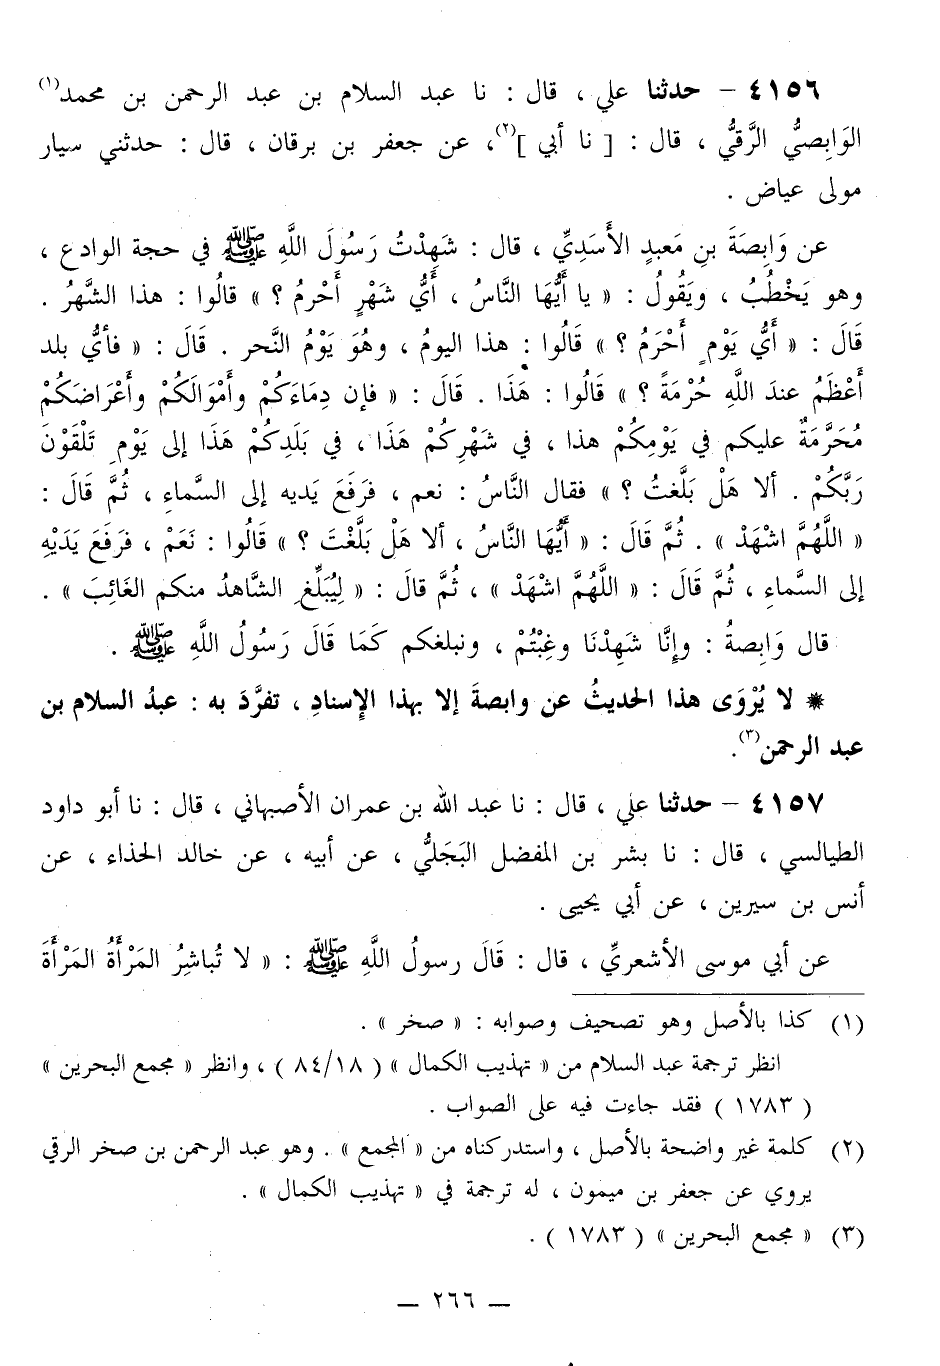 ٤١٥٦ – حدثنا علي ، قال : نا عبد السلام بن عبد الرحمن بن محمد(١)
الوَابِصيُّ الرَّقيُّ ، قال : [ نا أبي ](٢)، عن جعفر بن برقان ، قال : حدثني سيار
مولى عياض .
عن وَابِصَةَ بنِ مَعبدٍ الأَسَديِّ ، قال : شَهِدْتُ رَسُولَ اللَّهِ ﷺ في حجة الوادع ،
وهو يَخْطُبُ ، ويَقُولُ : « يا أَيُّهَا النَّاسُ ، أَيُّ شَهْرٍ أَحْرمُ ؟ » قالُوا : هذا الشَّهرُ .
قَالَ : « أَيُّ يَوْمٍ أَحْرَمُ ؟ » قَالُوا : هذا اليومُ ، وهُوَ يَوْمُ النَّحر . قَالَ : « فأيُّ بلد
أَعْظَمُ عندَ اللَّهِ حُرْمَةً ؟ » قَالُوا : هَذَا . قَالَ : « فإن دِمَاءَكُمْ وأَمْوَالَكُمْ وأَعْرَاضَكُمْ
مُحَرَّمَةٌ عليكم في يَوْمِكُمْ هذا ، في شَهْرِكُمْ هَذَا ، في بَلَدِكُمْ هَذَا إلى يَوْمِ تَلْقَوْنَ
رَبَّكُمْ . ألا هَلْ بَلَّغتُ ؟ » فقال النَّاسُ : نعم ، فرَفَعَ يَديه إلى السَّماءِ ، ثُمَّ قَالَ :
« اللَّهُمَّ اشْهَدْ » . ثُمَّ قَالَ : « أَيُّهَا النَّاسُ ، ألا هَلْ بَلَّغْتَ ؟ » قَالُوا : نَعَمْ ، فرَفَعَ يَدَيْهِ
إلى السَّماءِ ، ثُمَّ قَالَ : « اللَّهُمَّ اشْهَدْ » ، ثُمَّ قالَ : « لِيُبَلِّغِ الشَّاهدُ منكم الغَائِبَ » .
قال وَابِصةُ : وإنَّا شَهِدْنَا وغِبْتُمْ ، ونبلغكم كَمَا قَالَ رَسُولُ اللَّهِ ﷺ .
* لا يُرْوَى هذا الحديثُ عن وابصةَ إلا بهذا الإسنادِ ، تفرَّدَ به : عبدُ السلام بن
عبد الرحمن(٣).
٤١٥٧ – حدثنا علي ، قال : نا عبد الله بن عمران الأصبهاني ، قال : نا أبو داود
الطيالسي ، قال : نا بشر بن المفضل البَجَليُّ ، عن أبيه ، عن خالد الحذاء ، عن
أنس بن سيرين ، عن أبي يحيى .
عن أبي موسى الأشعريِّ ، قال : قَالَ رسولُ اللَّهِ ﷺ : « لا تُباشِرُ المَرْأَةُ المَرْأَةَ
(١) كذا بالأصل وهو تصحيف وصوابه : « صخر » .
انظر ترجمة عبد السلام من « تهذيب الكمال » ( ٨٤/١٨ ) ، وانظر « مجمع البحرين »
( ١٧٨٣ ) فقد جاءت فيه على الصواب .
(٢) كلمة غير واضحة بالأصل ، واستدركناه من « المجمع » . وهو عبد الرحمن بن صخر الرقي
يروي عن جعفر بن ميمون ، له ترجمة في « تهذيب الكمال » .
(٣) « مجمع البحرين » ( ١٧٨٣ ) .
— ٢٦٦ —